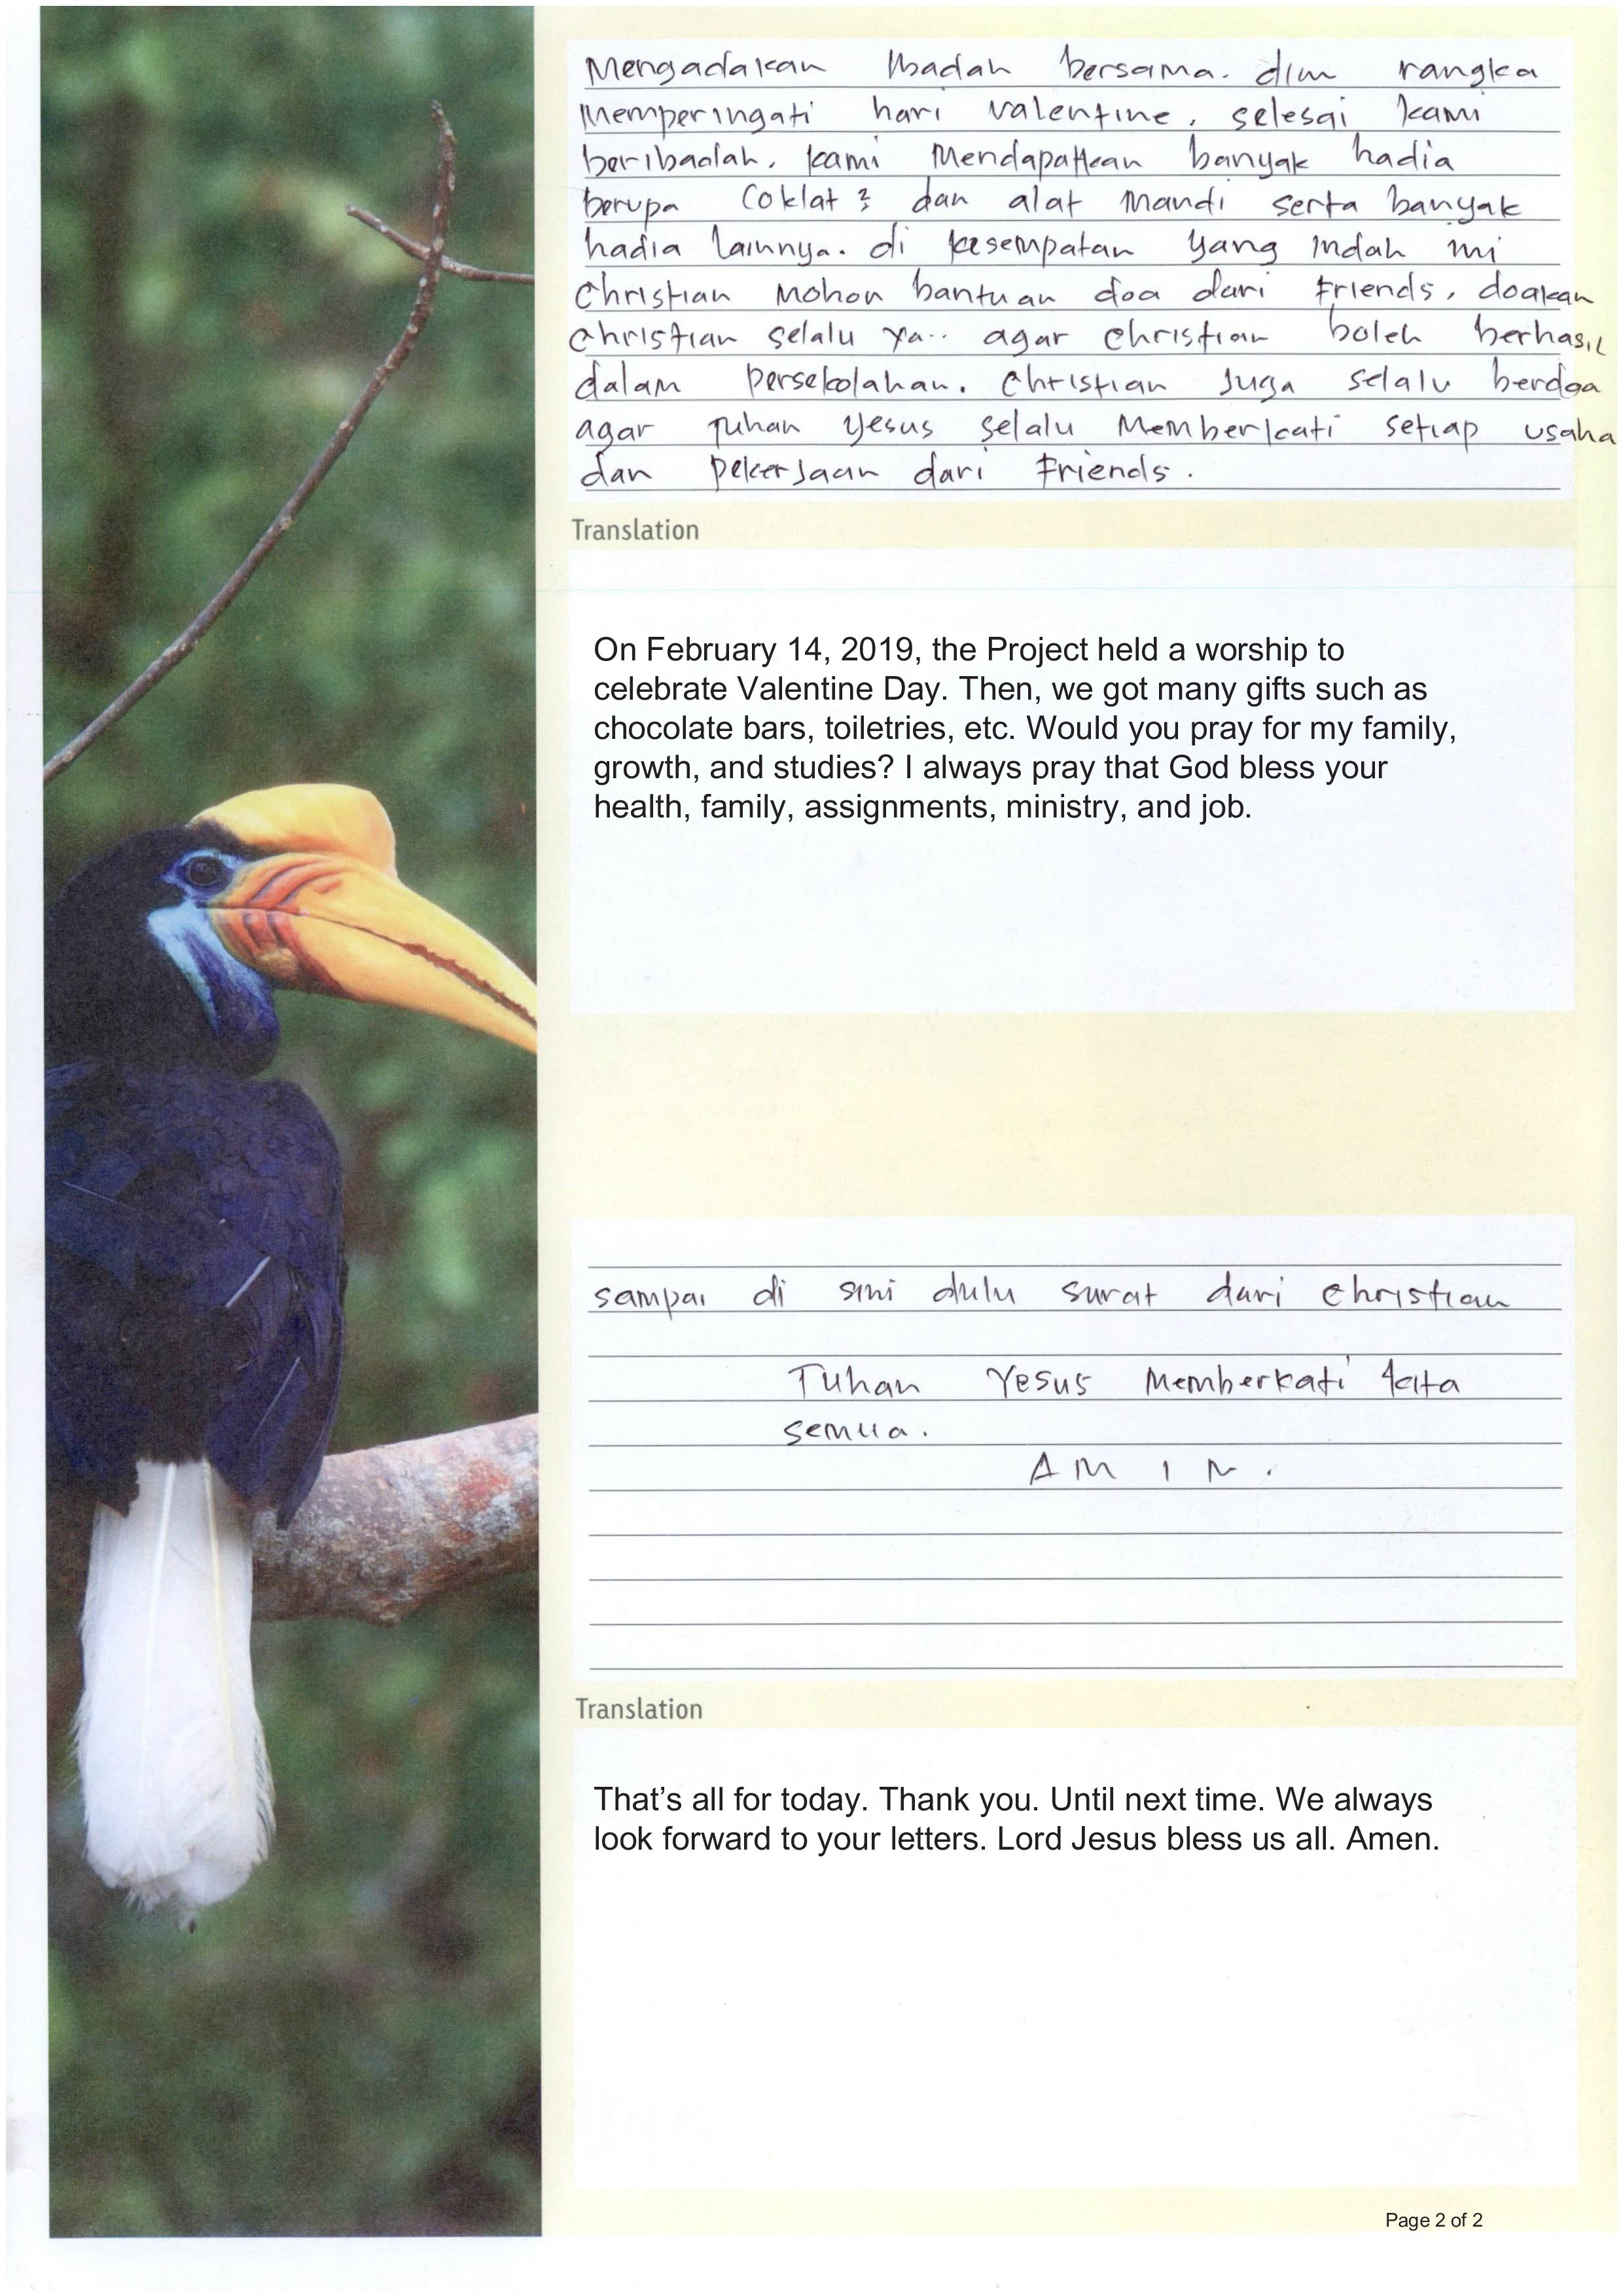 Mengadakan Ibadah bersama. dlm rangka
Memperingati hari valentine, selesai kami
beribadah, kami Mendapatkan banyak hadia
berupa Coklat² dan alat Mandi serta banyak
hadia lainnya. di kesempatan yang Indah ini
Christian Mohon bantuan doa dari Friends, doakan
Christian selalu ya.. agar Christian boleh berhasil
dalam persekolahan. Christian Juga selalu berdoa
agar Tuhan Yesus selalu Memberkati setiap usaha
dan pekerjaan dari Friends.
Translation
On February 14, 2019, the Project held a worship to
celebrate Valentine Day. Then, we got many gifts such as
chocolate bars, toiletries, etc. Would you pray for my family,
growth, and studies? I always pray that God bless your
health, family, assignments, ministry, and job.
sampai di sini dulu surat dari Christian
Tuhan Yesus Memberkati kita
semua.
A M I N.
Translation
That’s all for today. Thank you. Until next time. We always
look forward to your letters. Lord Jesus bless us all. Amen.
Page 2 of 2